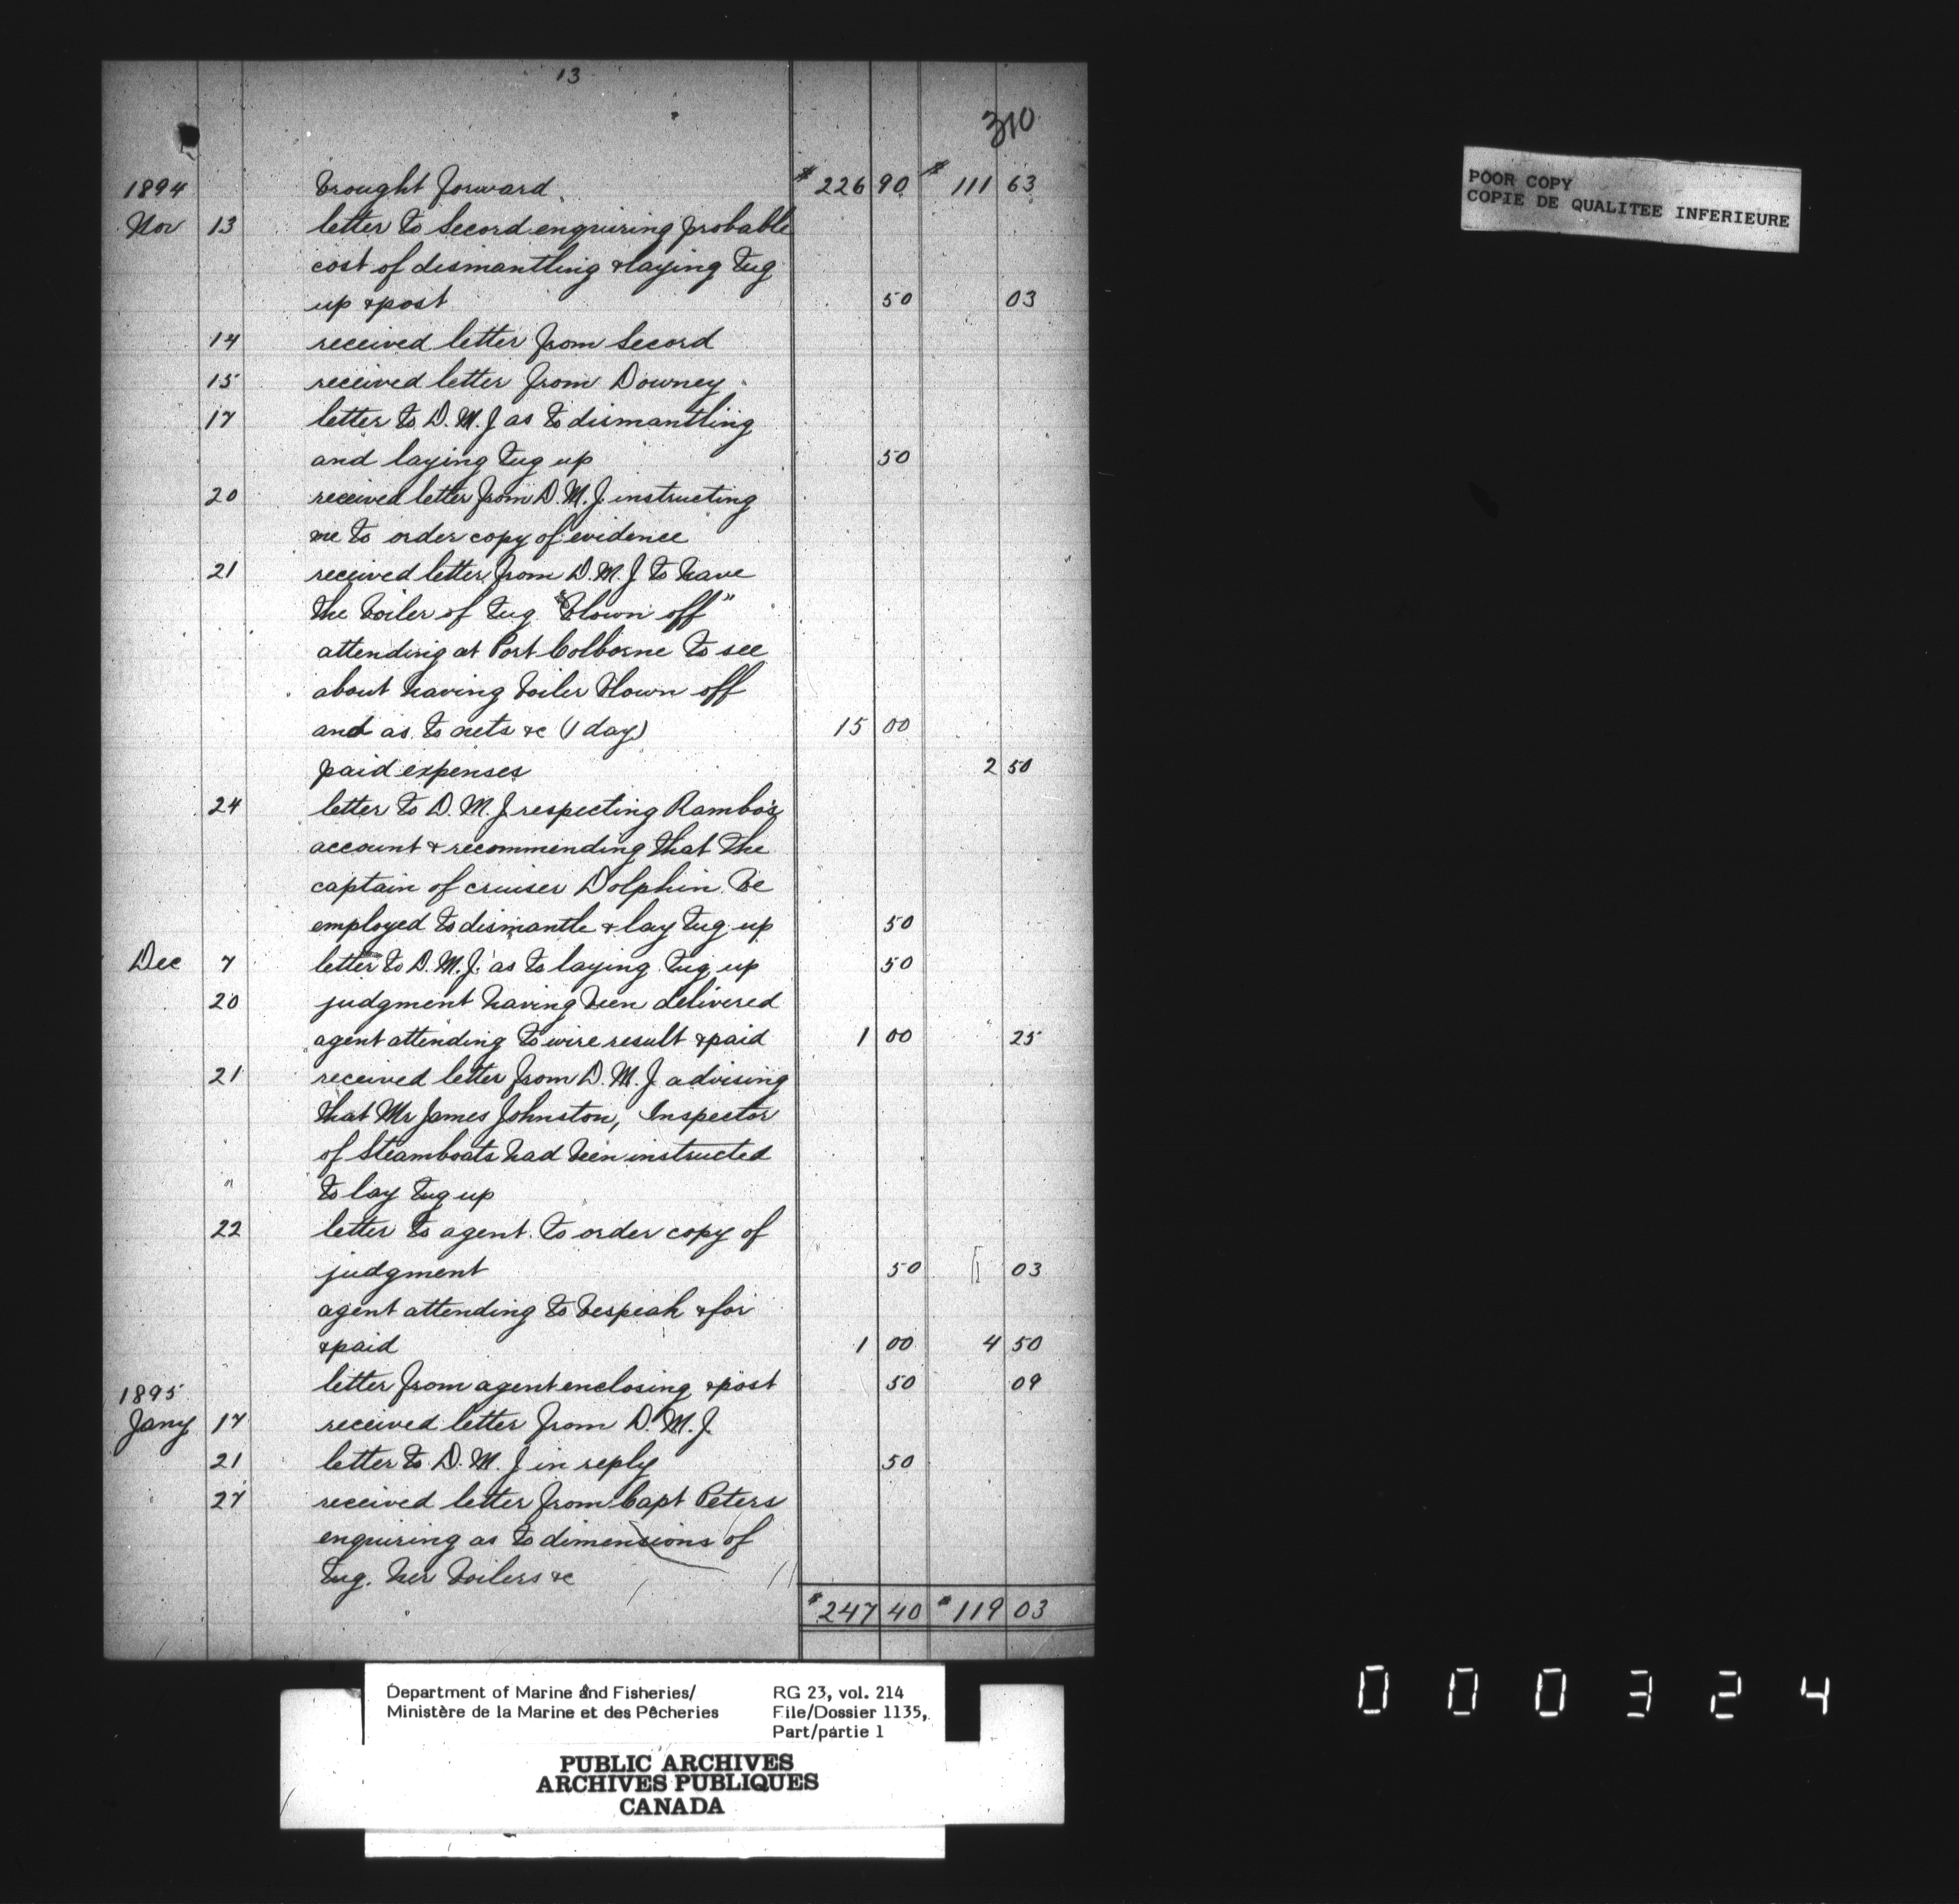 13
310
1894 brought forward $226 90 $111 63
Nov 13 letter to Secord enquiring probable
cost of dismantling & laying tug
up & post 50 03
14 received letter from Secord
15 received letter from Downey
17 letter to D. M. J as to dismantling
and laying tug up 50
20 received letter from D. M. J. instructing
me to order copy of evidence
21 received letter from D. M. J to have
the boiler of tug "blown off"
attending at Port Colborne to see
about having boiler blown off
and as to nets &c (1 day) 15 00
paid expenses 2 50
24 letter to D. M. J. respecting Rambo's
account & recommending that the
captain of cruiser Dolphin be
employed to dismantle & lay tug up 50
Dec 7 letter to D. M. J. as to laying tug up 50
20 judgment having been delivered
agent attending to wire result & paid 1 00 25
21 received letter from D. M. J advising
that Mr James Johnston, Inspector
of Steamboats had been instructed
" to lay tug up
22 letter to agent to order copy of
judgment 50 03
agent attending to bespeak & for
& paid 1 00 4 50
letter from agent enclosing & post 50 09
1895
Jany 17 received letter from D. M. J.
21 letter to D. M. J in reply 50
27 received letter from Capt Peters
enquiring as to dimensions of
tug. her boilers &c
$247 40 $119 03
POOR COPY
COPIE DE QUALITEE INFERIEURE
Department of Marine and Fisheries/ RG 23, vol. 214
Ministère de la Marine et des Pêcheries File/Dossier 1135,
Part/partie 1
PUBLIC ARCHIVES
ARCHIVES PUBLIQUES
CANADA
000324